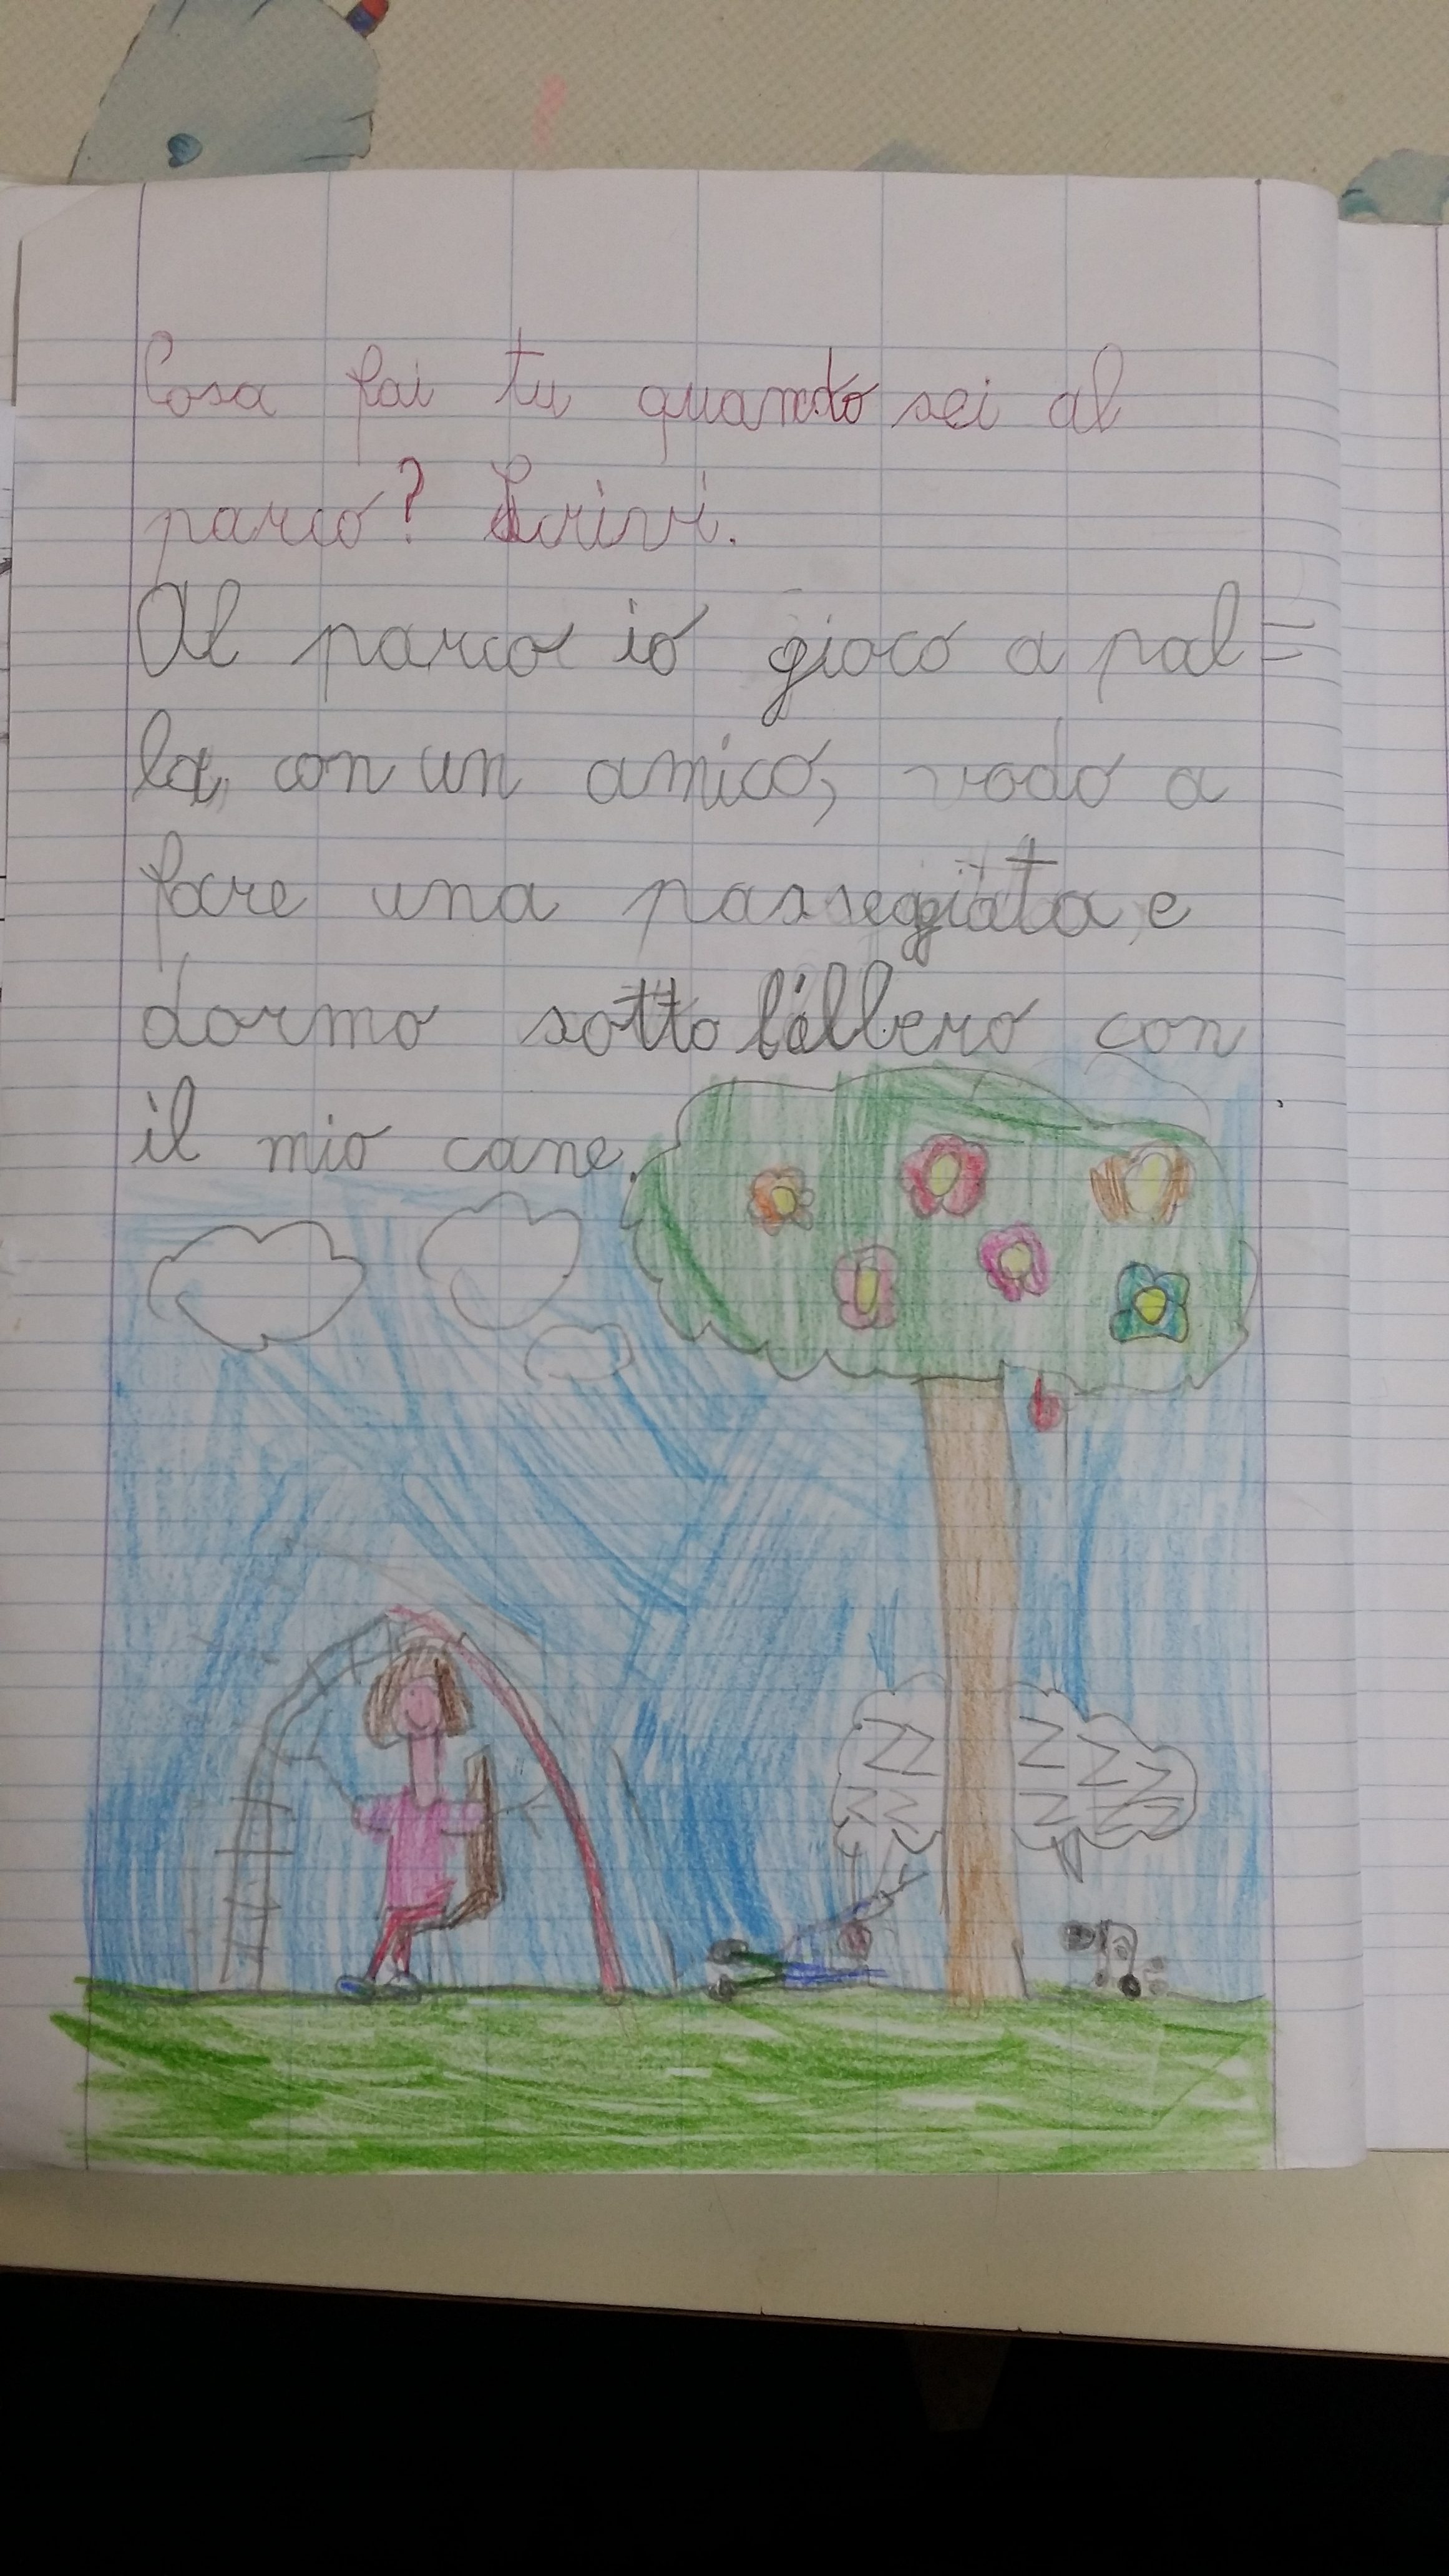 Cosa fai tu quando sei al
parco? Scrivi.
Al parco io gioco a pal=
la, con un amico, vado a
fare una passegiata e
dormo sotto l'albero con
il mio cane.
ZZ Z Z Z
ZZ Z Z